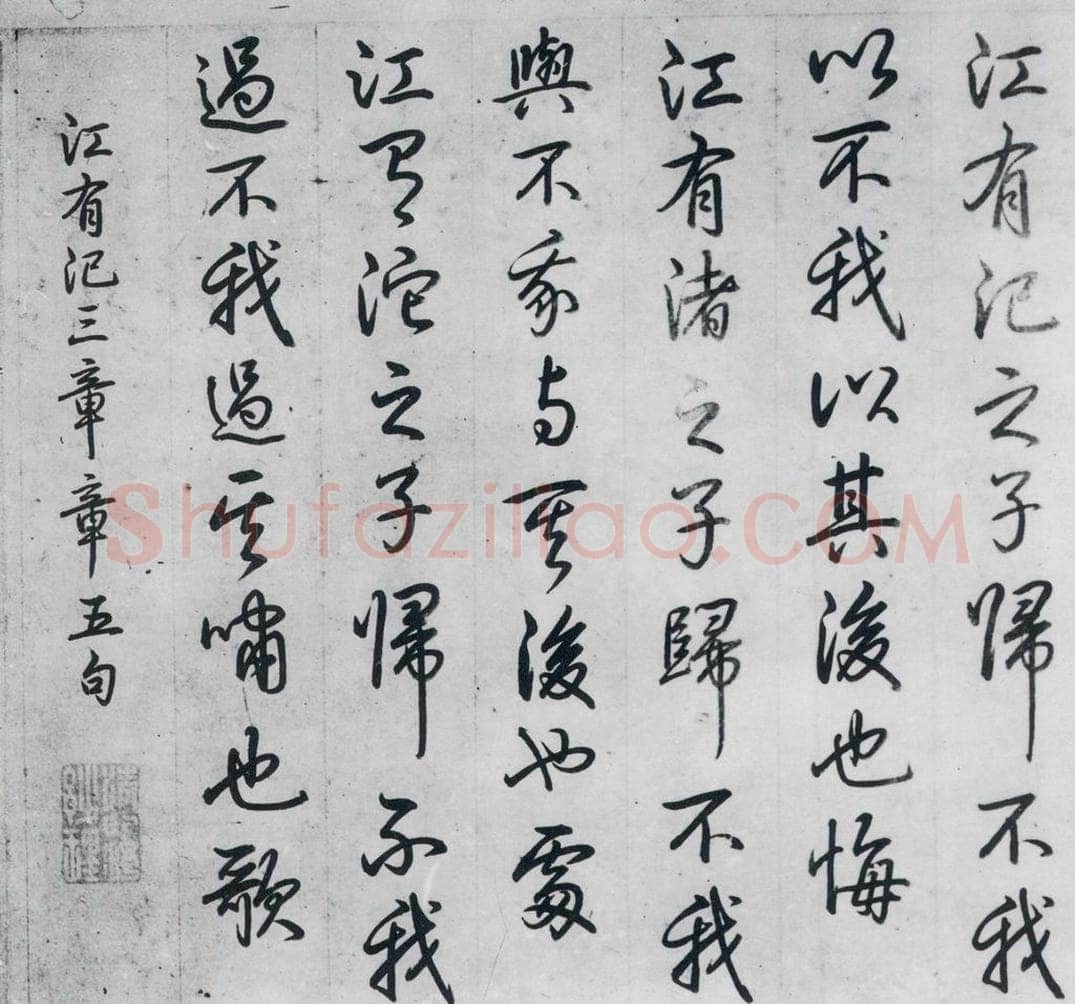 江有汜之子歸不我
以不我以其後也悔
江有渚之子歸不我
與不我与其後也處
江有沱之子歸不我
過不我過其嘯也歌
江有汜三章章五句
Shufaziliao.COM